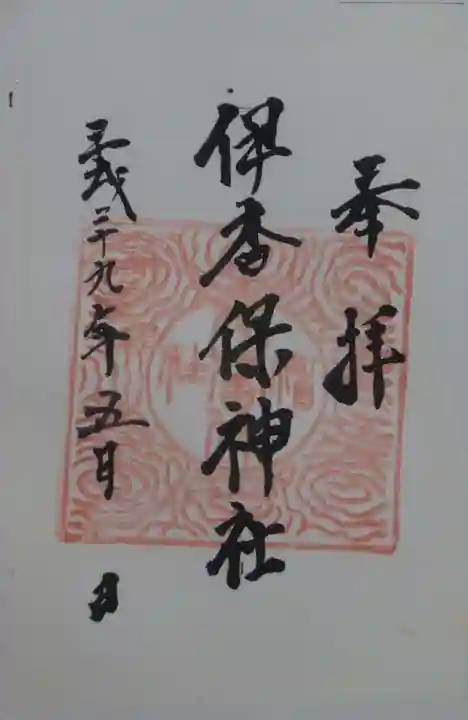 奉拝
伊香保神社
平成二十九年五月 日